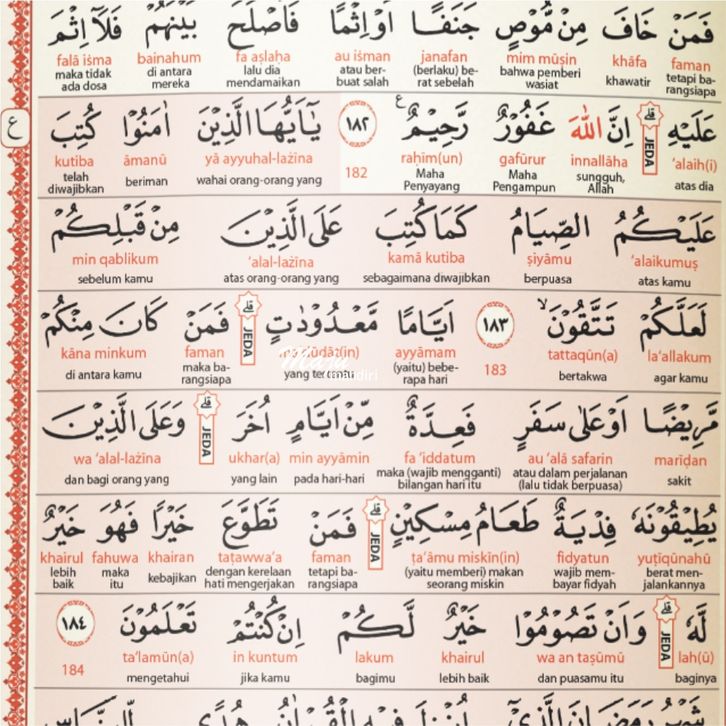 فَمَنْ خَافَ مِنْ مُّوْصٍ جَنَفًا اَوْ اِثْمًا فَاَصْلَحَ بَيْنَهُمْ فَلَآ اِثْمَ
faman khāfa mim mūṣin janafan au iṡman fa aṣlaḥa bainahum falā iṡma
tetapi barangsiapa khawatir bahwa pemberi wasiat (berlaku) berat sebelah atau berbuat salah lalu dia mendamaikan di antara mereka maka tidak ada dosa
عَلَيْهِ ۗ اِنَّ اللّٰهَ غَفُوْرٌ رَّحِيْمٌ ۝١٨٢ يٰٓاَيُّهَا الَّذِيْنَ اٰمَنُوْا كُتِبَ
ع
'alaih(i) JEDA innallāha gafūrur raḥīm(un) 182 yā ayyuhal-lażīna āmanū kutiba
atas dia sungguh, Allah Maha Pengampun Maha Penyayang wahai orang-orang yang beriman telah diwajibkan
عَلَيْكُمُ الصِّيَامُ كَمَا كُتِبَ عَلَى الَّذِيْنَ مِنْ قَبْلِكُمْ
'alaikumuṣ ṣiyāmu kamā kutiba 'alal-lażīna min qablikum
atas kamu berpuasa sebagaimana diwajibkan atas orang-orang yang sebelum kamu
لَعَلَّكُمْ تَتَّقُوْنَ ۙ ۝١٨٣ اَيَّامًا مَّعْدُوْدٰتٍ ۗ فَمَنْ كَانَ مِنْكُمْ
la'allakum tattaqūn(a) 183 ayyāmam JEDA faman kāna minkum
agar kamu bertakwa (yaitu) beberapa hari yang maka barangsiapa di antara kamu
مَّرِيْضًا اَوْ عَلٰى سَفَرٍ فَعِدَّةٌ مِّنْ اَيَّامٍ اُخَرَ ۗ وَعَلَى الَّذِيْنَ
marīḍan au 'alā safarin fa 'iddatum min ayyāmin ukhar(a) JEDA wa 'alal-lażīna
sakit atau dalam perjalanan (lalu tidak berpuasa) maka (wajib mengganti) bilangan hari itu pada hari-hari yang lain dan bagi orang yang
يُطِيْقُوْنَهٗ فِدْيَةٌ طَعَامُ مِسْكِيْنٍ ۗ فَمَنْ تَطَوَّعَ خَيْرًا فَهُوَ خَيْرٌ
yuṭīqūnahū fidyatun ṭa'āmu miskīn(in) JEDA faman taṭawwa'a khairan fahuwa khairul
berat menjalankannya wajib membayar fidyah (yaitu memberi) makan seorang miskin tetapi barangsiapa dengan kerelaan hati mengerjakan kebajikan maka itu lebih baik
لَّهٗ ۗ وَاَنْ تَصُوْمُوْا خَيْرٌ لَّكُمْ اِنْ كُنْتُمْ تَعْلَمُوْنَ ۝١٨٤
lah(ū) JEDA wa an taṣūmū khairul lakum in kuntum ta'lamūn(a) 184
baginya dan puasamu itu lebih baik bagimu jika kamu mengetahui